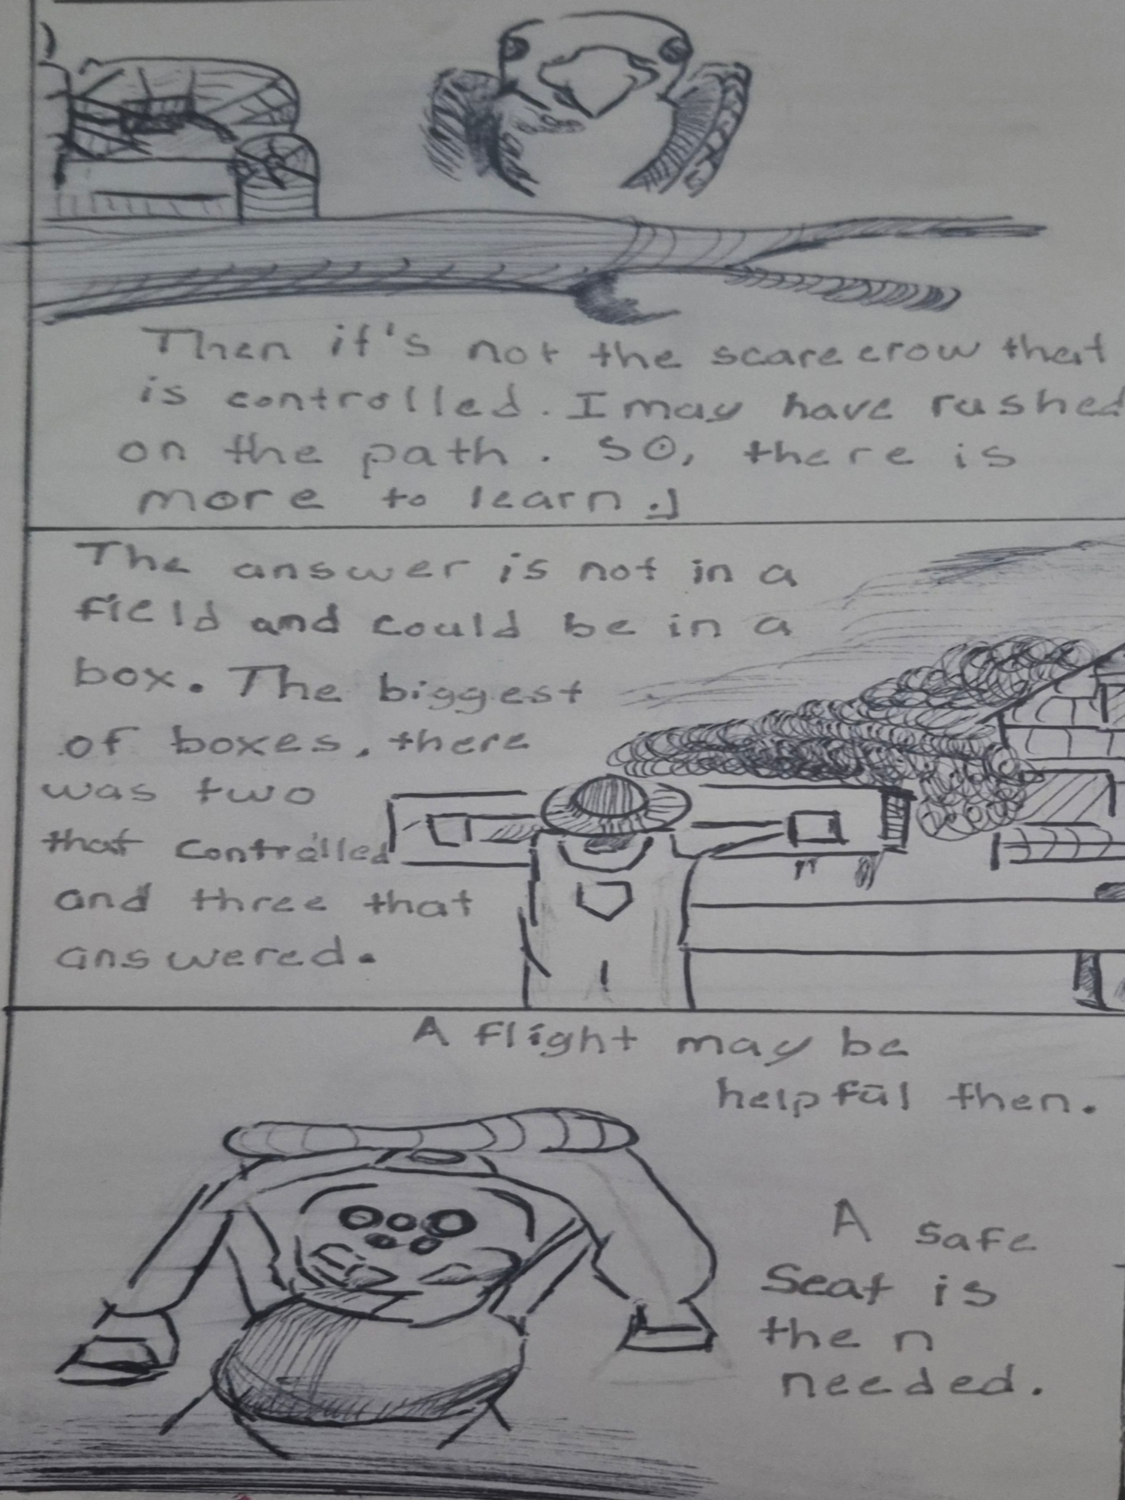 Then it's not the scarecrow that
is controlled. I may have rushed
on the path. SO, there is
more to learn.
The answer is not in a
field and could be in a
box. The biggest
of boxes, there
was two
that controlled
and three that
answered.
A flight may be
helpful then.
A safe
Seat is
then
needed.